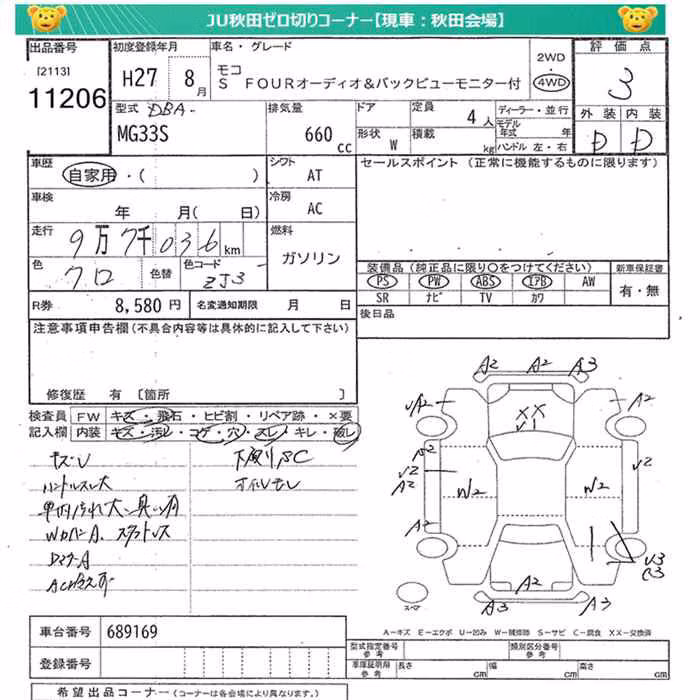 JU秋田ゼロ切りコーナー【現車：秋田会場】
出品番号
[2113]
11206
初度登録年月
H27 8月
車名・グレード
モコ
S FOURオーディオ&バックビューモニター付
2WD
4WD
評価点
3
型式 DBA-
MG33S
排気量
660 cc
ドア
形状 W
定員
4人
積載
kg
ディーラー・並行
モデル年式 年
ハンドル 左・右
外装 内装
D D
車歴
自家用・( )
シフト
AT
セールスポイント (正常に機能するものに限ります)
車検
年 月( 日)
冷房
AC
走行
9万7千036km
燃料
ガソリン
色
クロ
色替
色コード
ZJ3
装備品 (純正品に限り○をつけてください)
PS PW ABS エアB AW
SR ナビ TV カワ
新車保証書
有・無
R券 8,580円
名変通知期限 月 日
後日品
注意事項申告欄 (不具合内容等は具体的に記入して下さい)
修復歴 有 〔箇所 〕
検査員記入欄
FW キズ・飛石・ヒビ割・リペア跡・×要
内装 キズ・汚レ・コゲ・穴・スレ・キレ・破レ
キズU
ハンドルスレ大
下廻りSC
オイルモレ
A2 A2 A3
A2 A2
XX
U1
A2 W2 W2
A2
A2
A3 A3
スペア
A－キズ E－エクボ U－凹み W－補修跡 S－サビ C－腐食 XX－交換済
車台番号 689169
登録番号
型式指定番号 参考
類別区分番号 参考
車庫証明用 参考
長さ cm 幅 cm 高さ cm
希望出品コーナー (コーナーは各会場により異なります。)